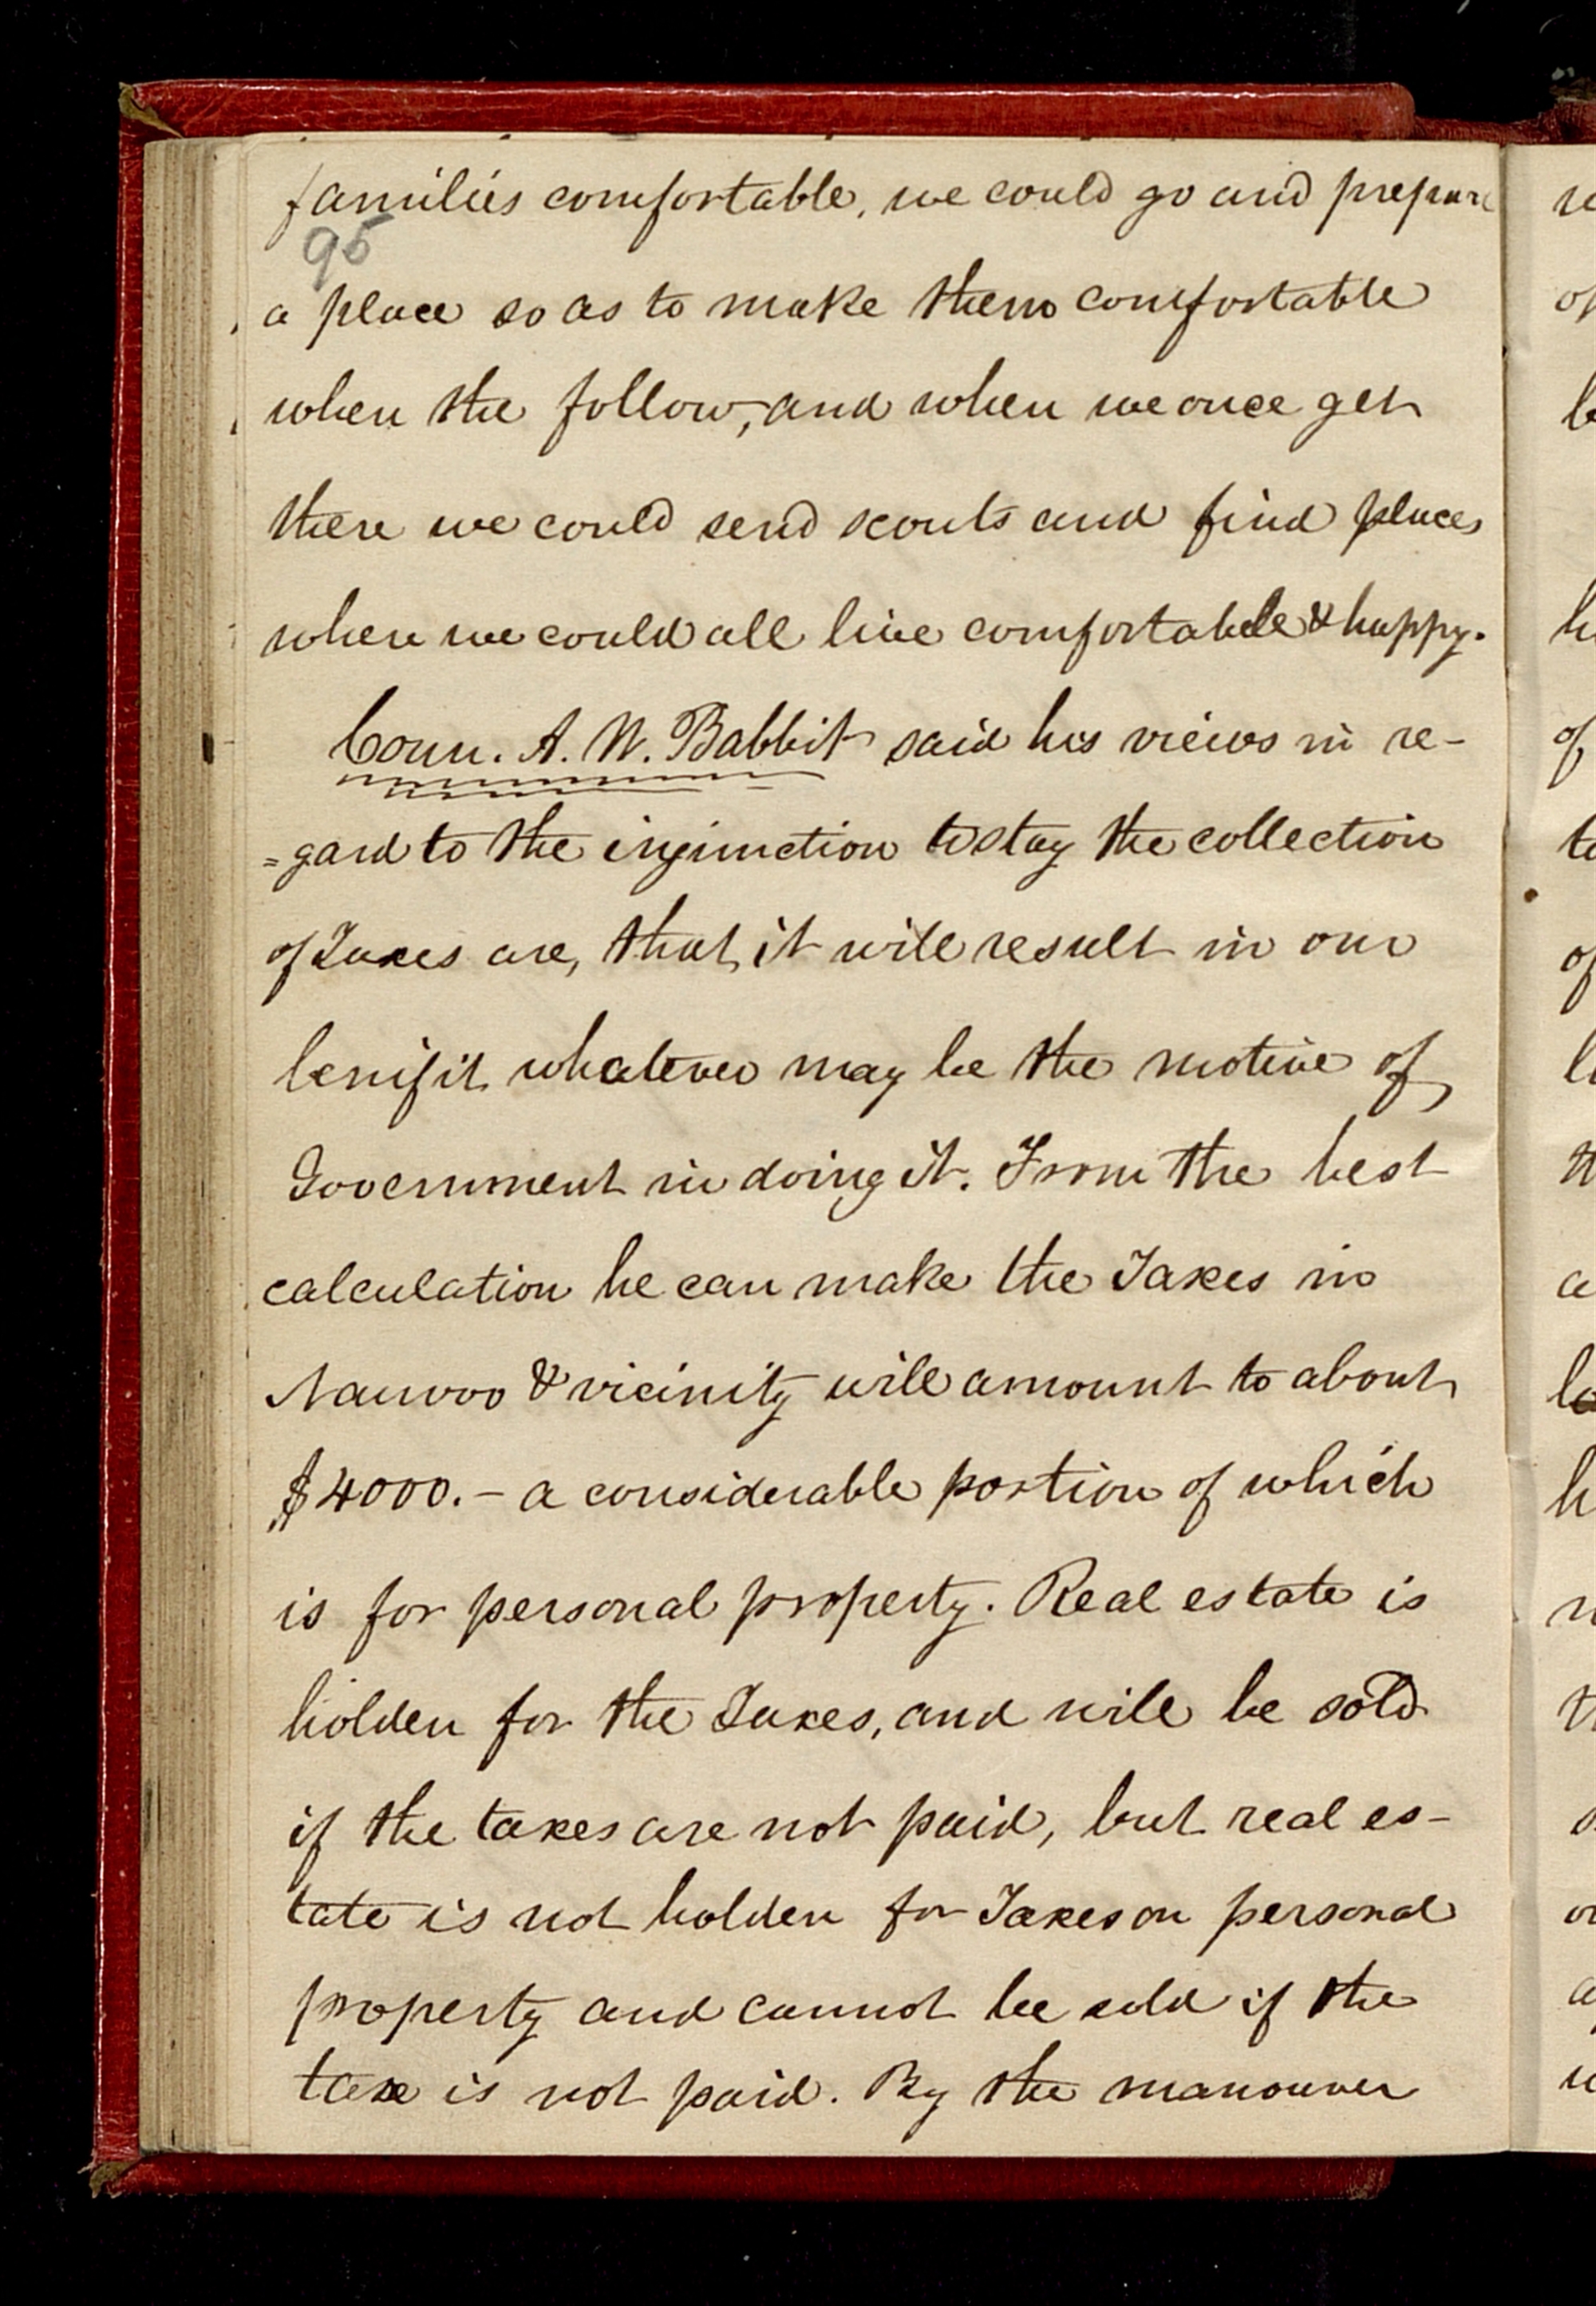 families comfortable, we could go and prepare
95
a place so as to make them comfortable
when the follow, and when we once get
there we could send scouts and find places
where we could all live comfortable & happy.
Coun. A. W. Babbit said his views in re-
=gard to the injunction to stay the collection
of Taxes are, that it will result in our
benifit whatever may be the motive of
Government in doing it. From the best
calculation he can make the Taxes in
Nauvoo & vicinity will amount to about
$4000.- a considerable portion of which
is for personal property. Real estate is
holden for the Taxes, and will be sold
if the taxes are not paid, but real es-
tate is not holden for Taxes on personal
property and cannot be sold if the
taxe is not paid. By the manouver